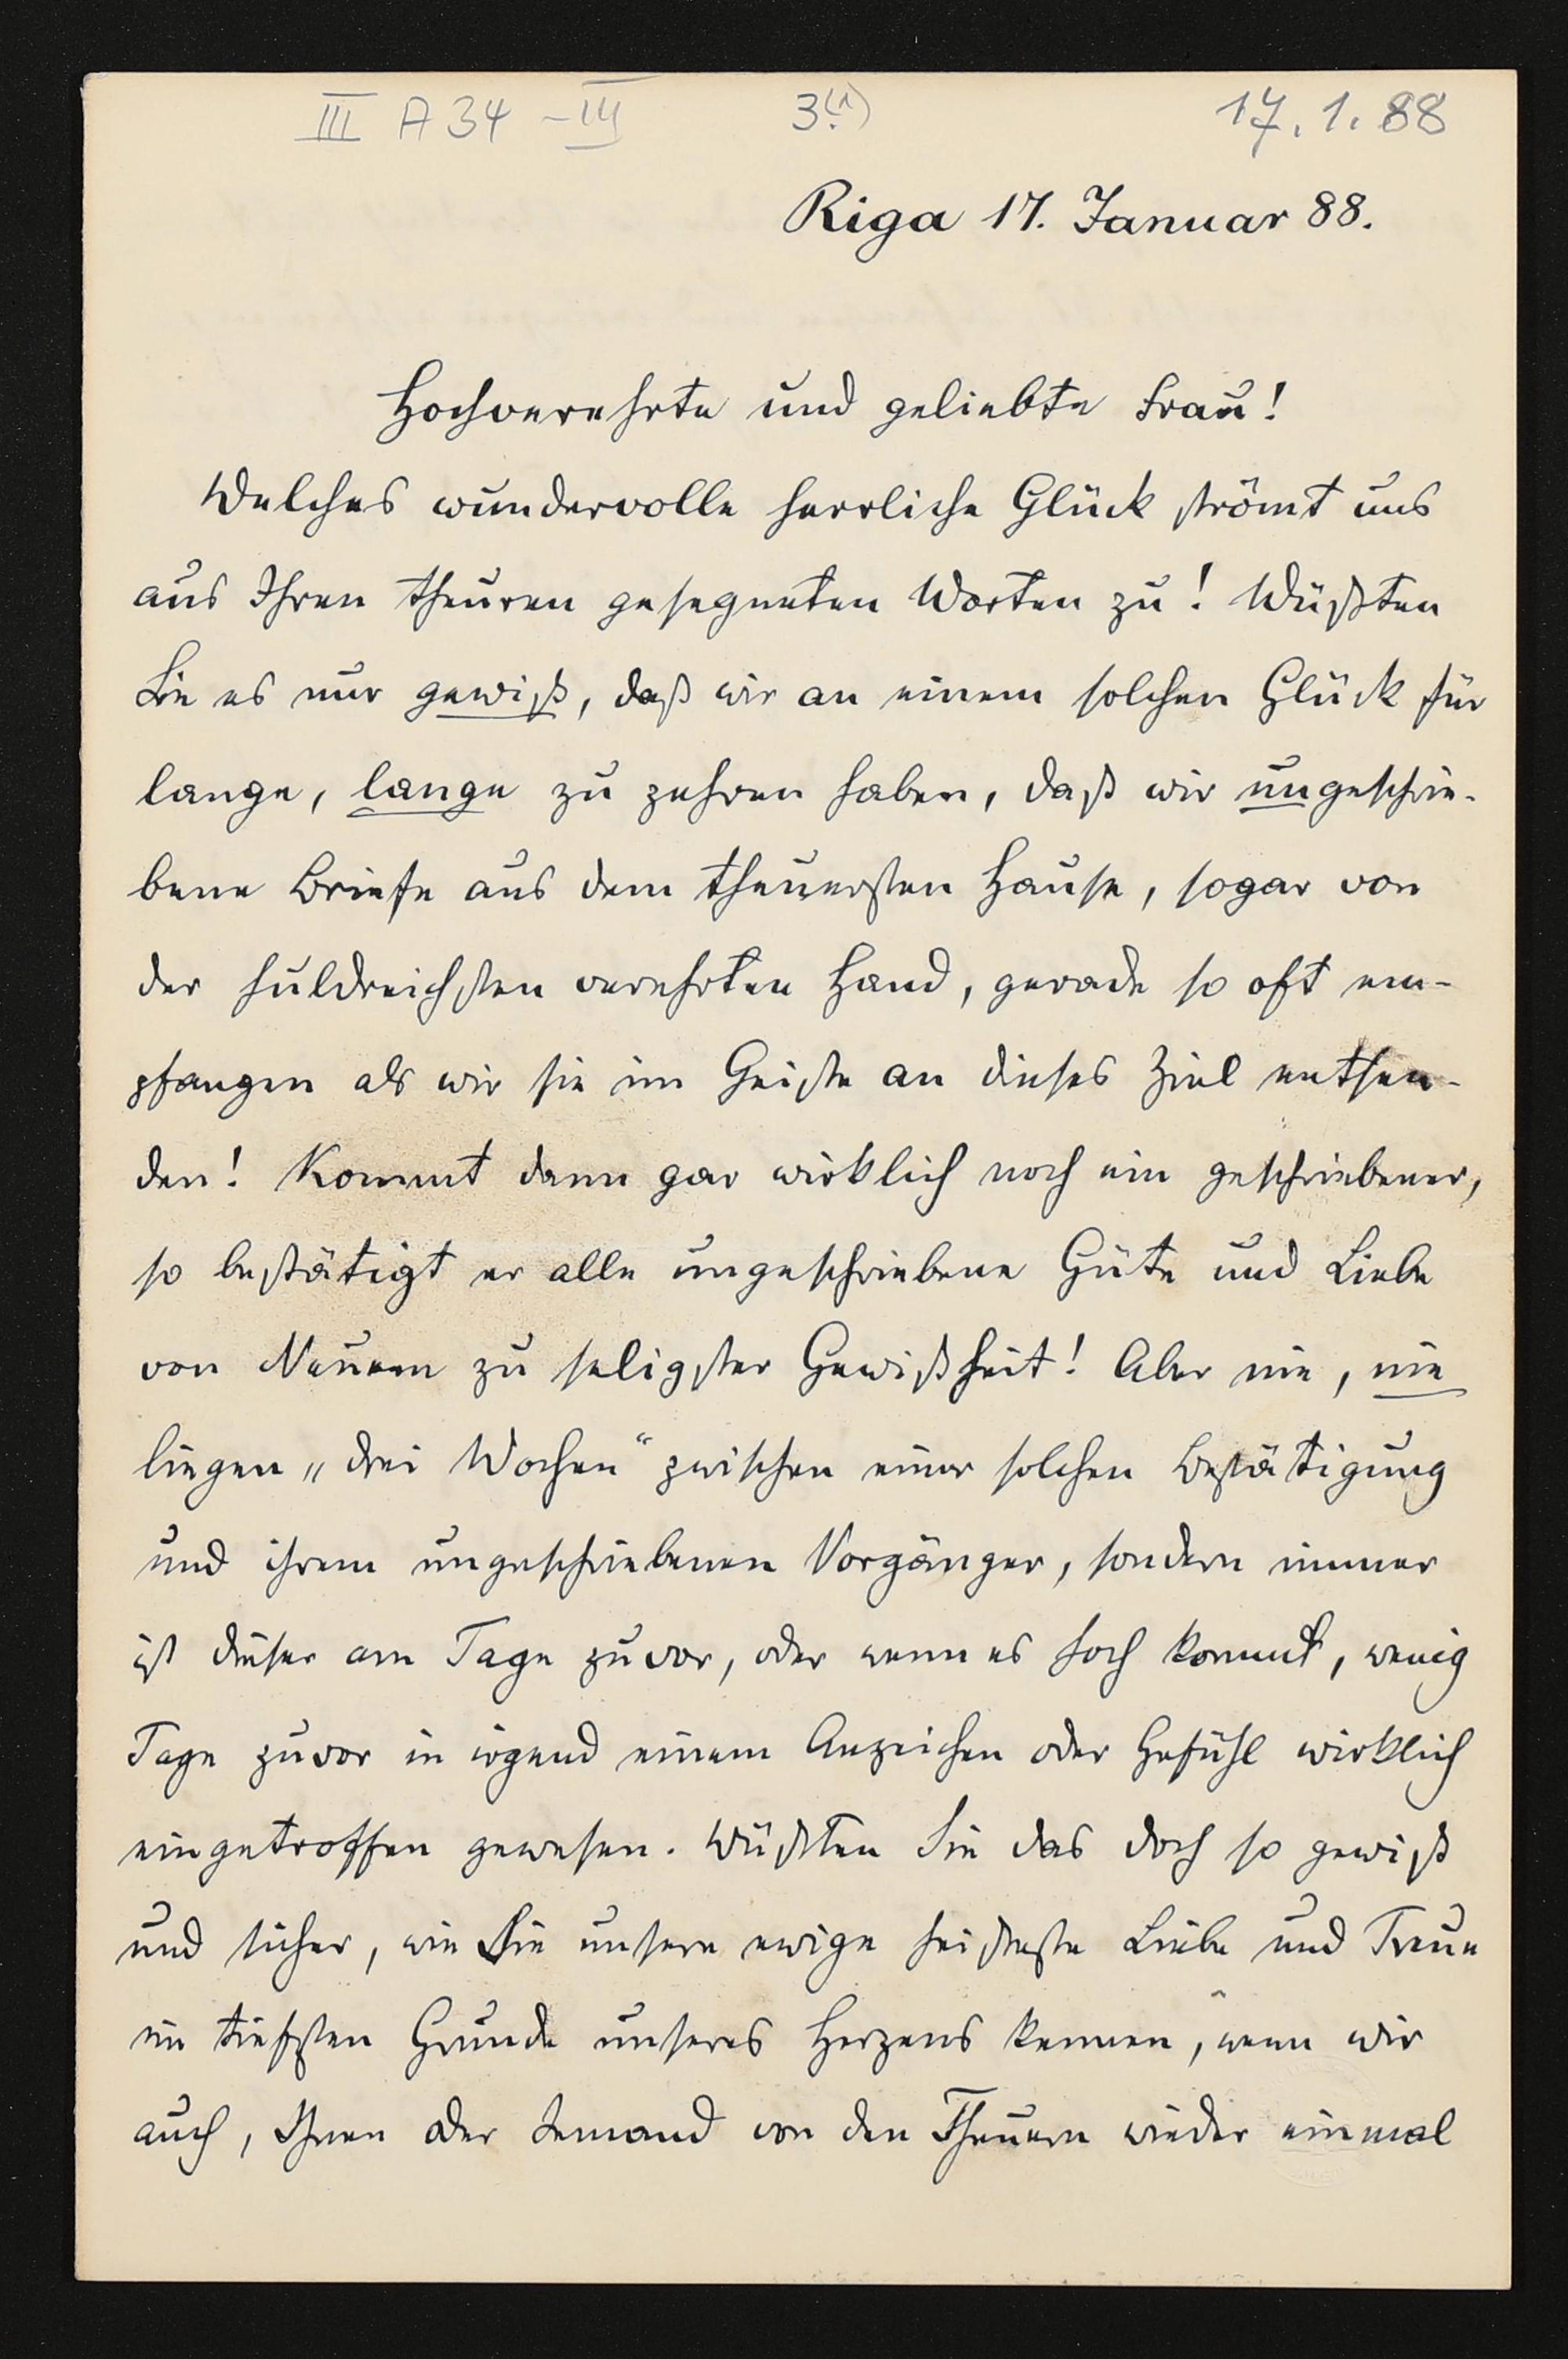 III A 34 - IV 3(1) 17. 1. 88
Riga 17. Januar 88.
Hochverehrte und geliebte Frau!
Welches wundervolle herrliche Glück strömt uns
aus Ihren theuren gesegneten Worten zu! Wüßten
Sie es nur gewiß, daß wir an einem solchen Glück für
lange, lange zu zehren haben, daß wir ungeschrie-
bene Briefe aus dem theuersten Hause, sogar von
der huldreichsten verehrten Hand, gerade so oft em-
pfangen als wir sie im Geiste an dieses Ziel entsen-
den! Kommt dann gar wirklich noch ein geschriebener,
so bestätigt er alle ungeschriebene Güte und Liebe
von Neuem zu seligster Gewißheit! Aber nie, nie
liegen „drei Wochen“ zwischen einer solchen Bestätigung
und ihrem ungeschriebenen Vorgänger, sondern immer
ist dieser am Tage zuvor, oder wenn es hoch kommt, wenig
Tage zuvor in irgend einem Anzeichen oder Gefühl wirklich
eingetroffen gewesen. Wüßten Sie das doch so gewiß
und sicher, wie Sie unsere ewige heißeste Liebe und Treue
im tiefsten Grunde unseres Herzens kennen, wenn wir
auch, Ihnen oder Jemand von den Theuern wieder einmal